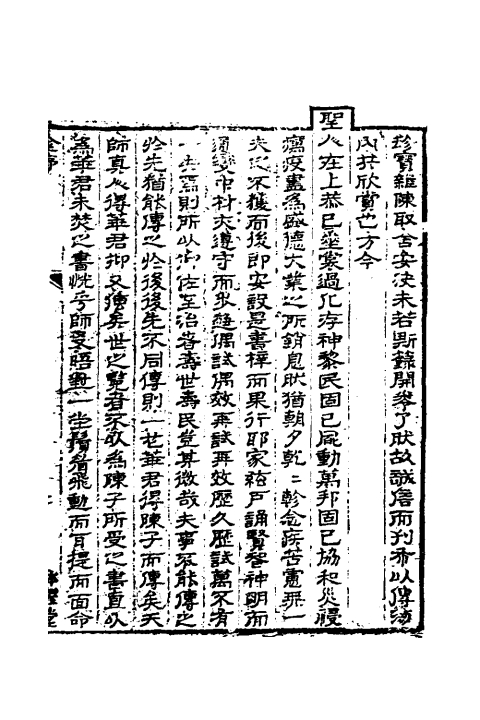 珍寶雜陳取舍安決未若斯錄開卷了然故誠屬而刊布以傳海
內共欣賞也方今
聖人在上恭己垂裳過化存神黎民固已風動萬邦固已協和災祲
癘疫盡為盛德大業之所銷息然猶朝夕乾乾軫念疾苦憲天一
夫之不獲而後即安設是書梓而果行耶家絃戶誦賢智神明而
通變中材夫遵守而步趨偶試偶效再試再效歷久歷試萬不有
一失焉則所以仰佐至治者壽世壽民豈其微哉夫事不能傳之
於先猶能傳之於後後先不同傳則一也華君得陳子而傳矣天
師真人得華君抑又傳矣世之覽者不敢為陳子所受之書直以
為華君未焚之書恍乎師受晤對一坐鬚眉飛動而耳提而面命